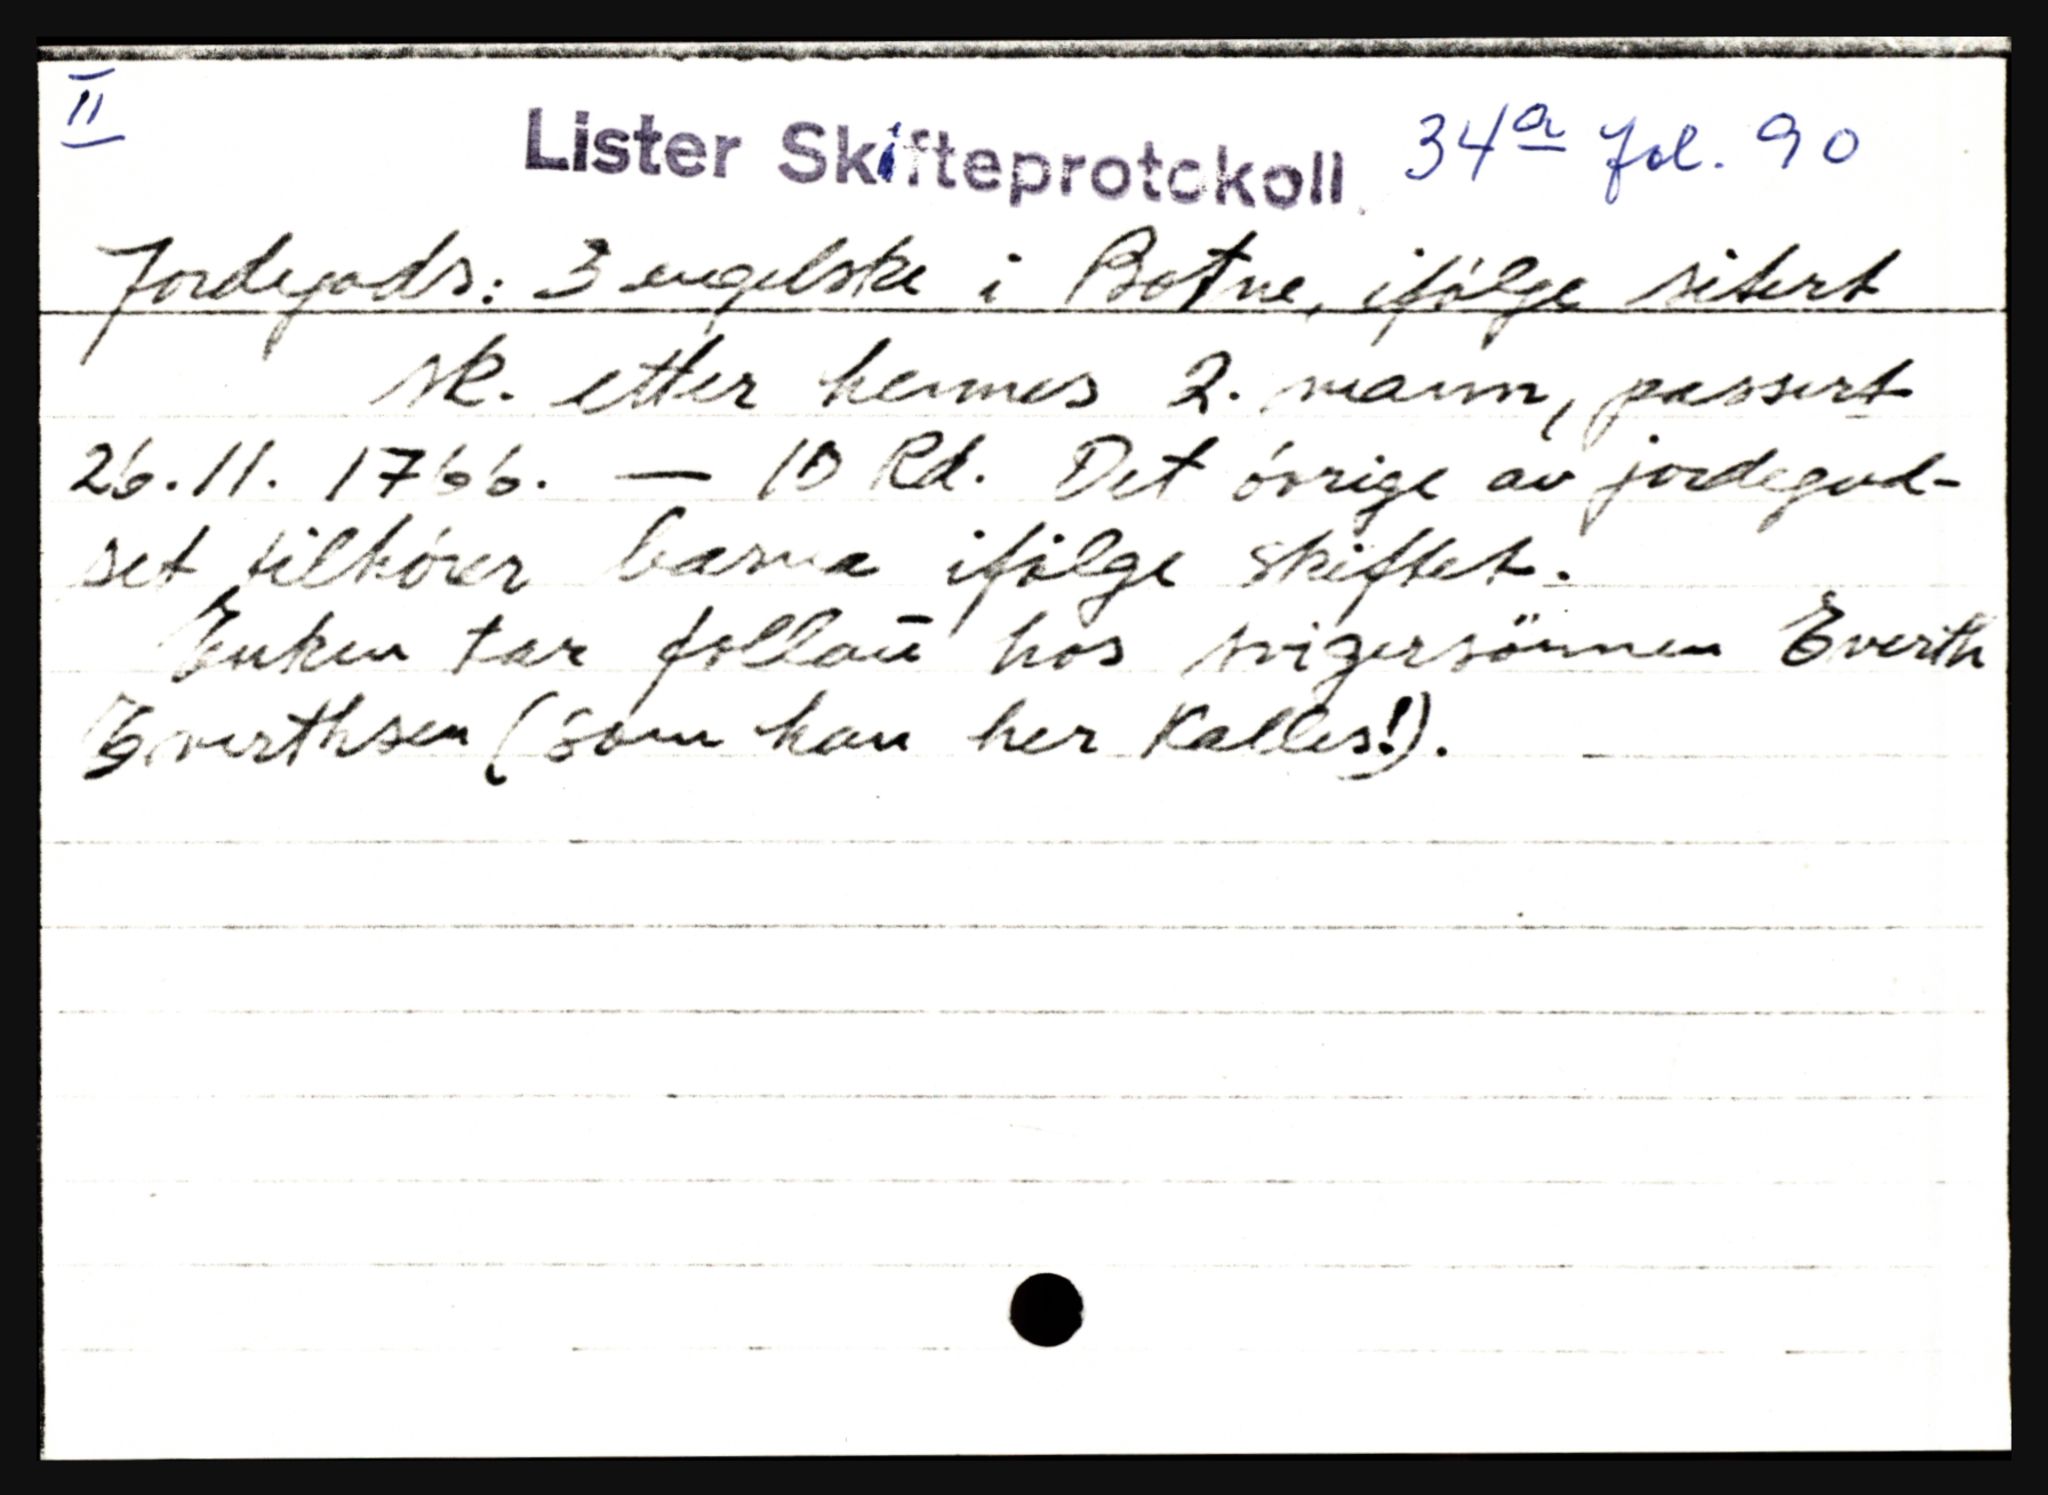 II
Lister Skifteprotokoll 34a fol. 90
Jordegods: 3 engelske i Botne, ifölge sitert
sk. etter hennes 2. mann, passert
26.11. 1766. — 10 Rd. Det óvrige av jordegod-
set tilhórer barna ifölge skiftet.
Enken tar follaū hos svigersönnen Everth
Everthsen (som han her kalles!).